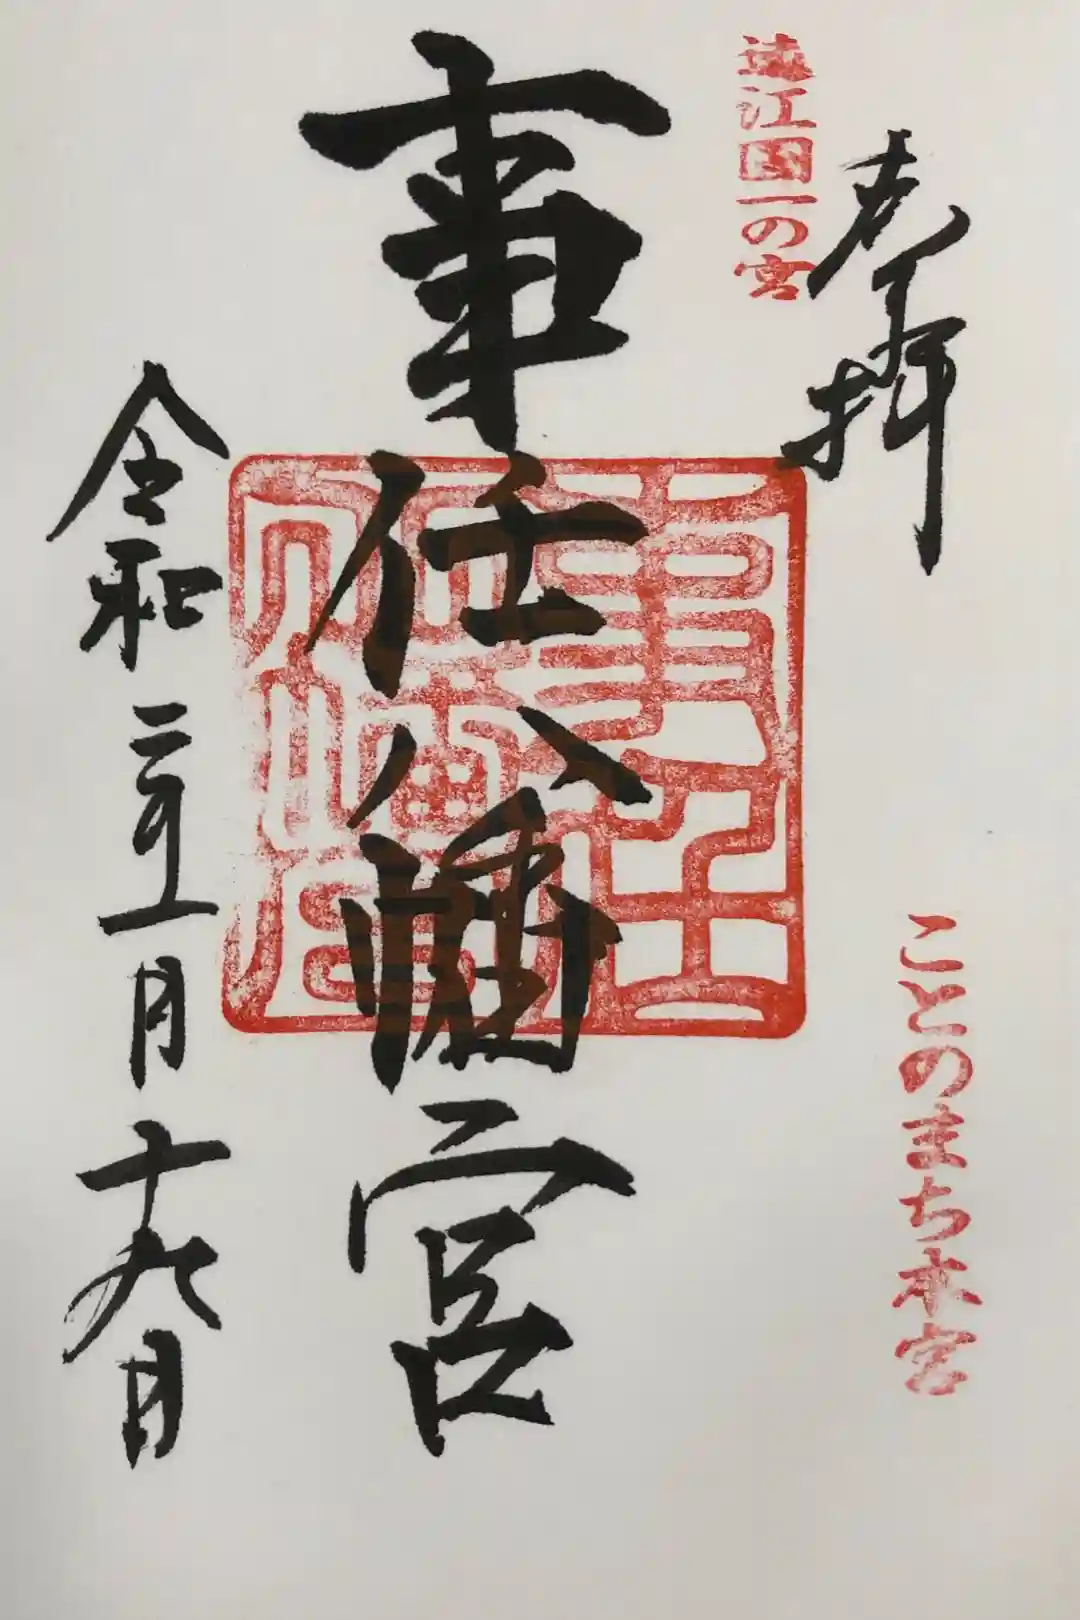 奉拝
遠江国一の宮
ことのまち本宮
事任八幡宮
事任
八幡宮
令和二年一月十九日